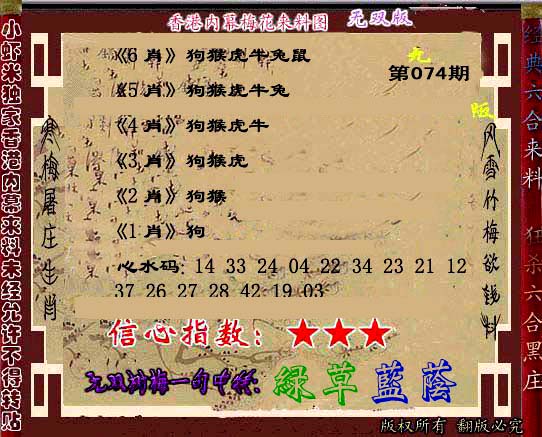 香港内幕梅花来料图 无双版
《6 肖》狗猴虎牛兔鼠
第074期
《5 肖》狗猴虎牛兔
《4 肖》狗猴虎牛
《3 肖》狗猴虎
《2 肖》狗猴
《1 肖》狗
心水码: 14 33 24 04 22 34 23 21 12
37 26 27 28 42 19 03
信心指数: ★★★
一句中特: 綠草藍蔭
版权所有 翻版必究
小虾米独家香港内幕来料未经允许不得转贴
寒梅屠庄生肖
风雪竹梅欲钱料
经典六合来料
狂杀六合黑庄